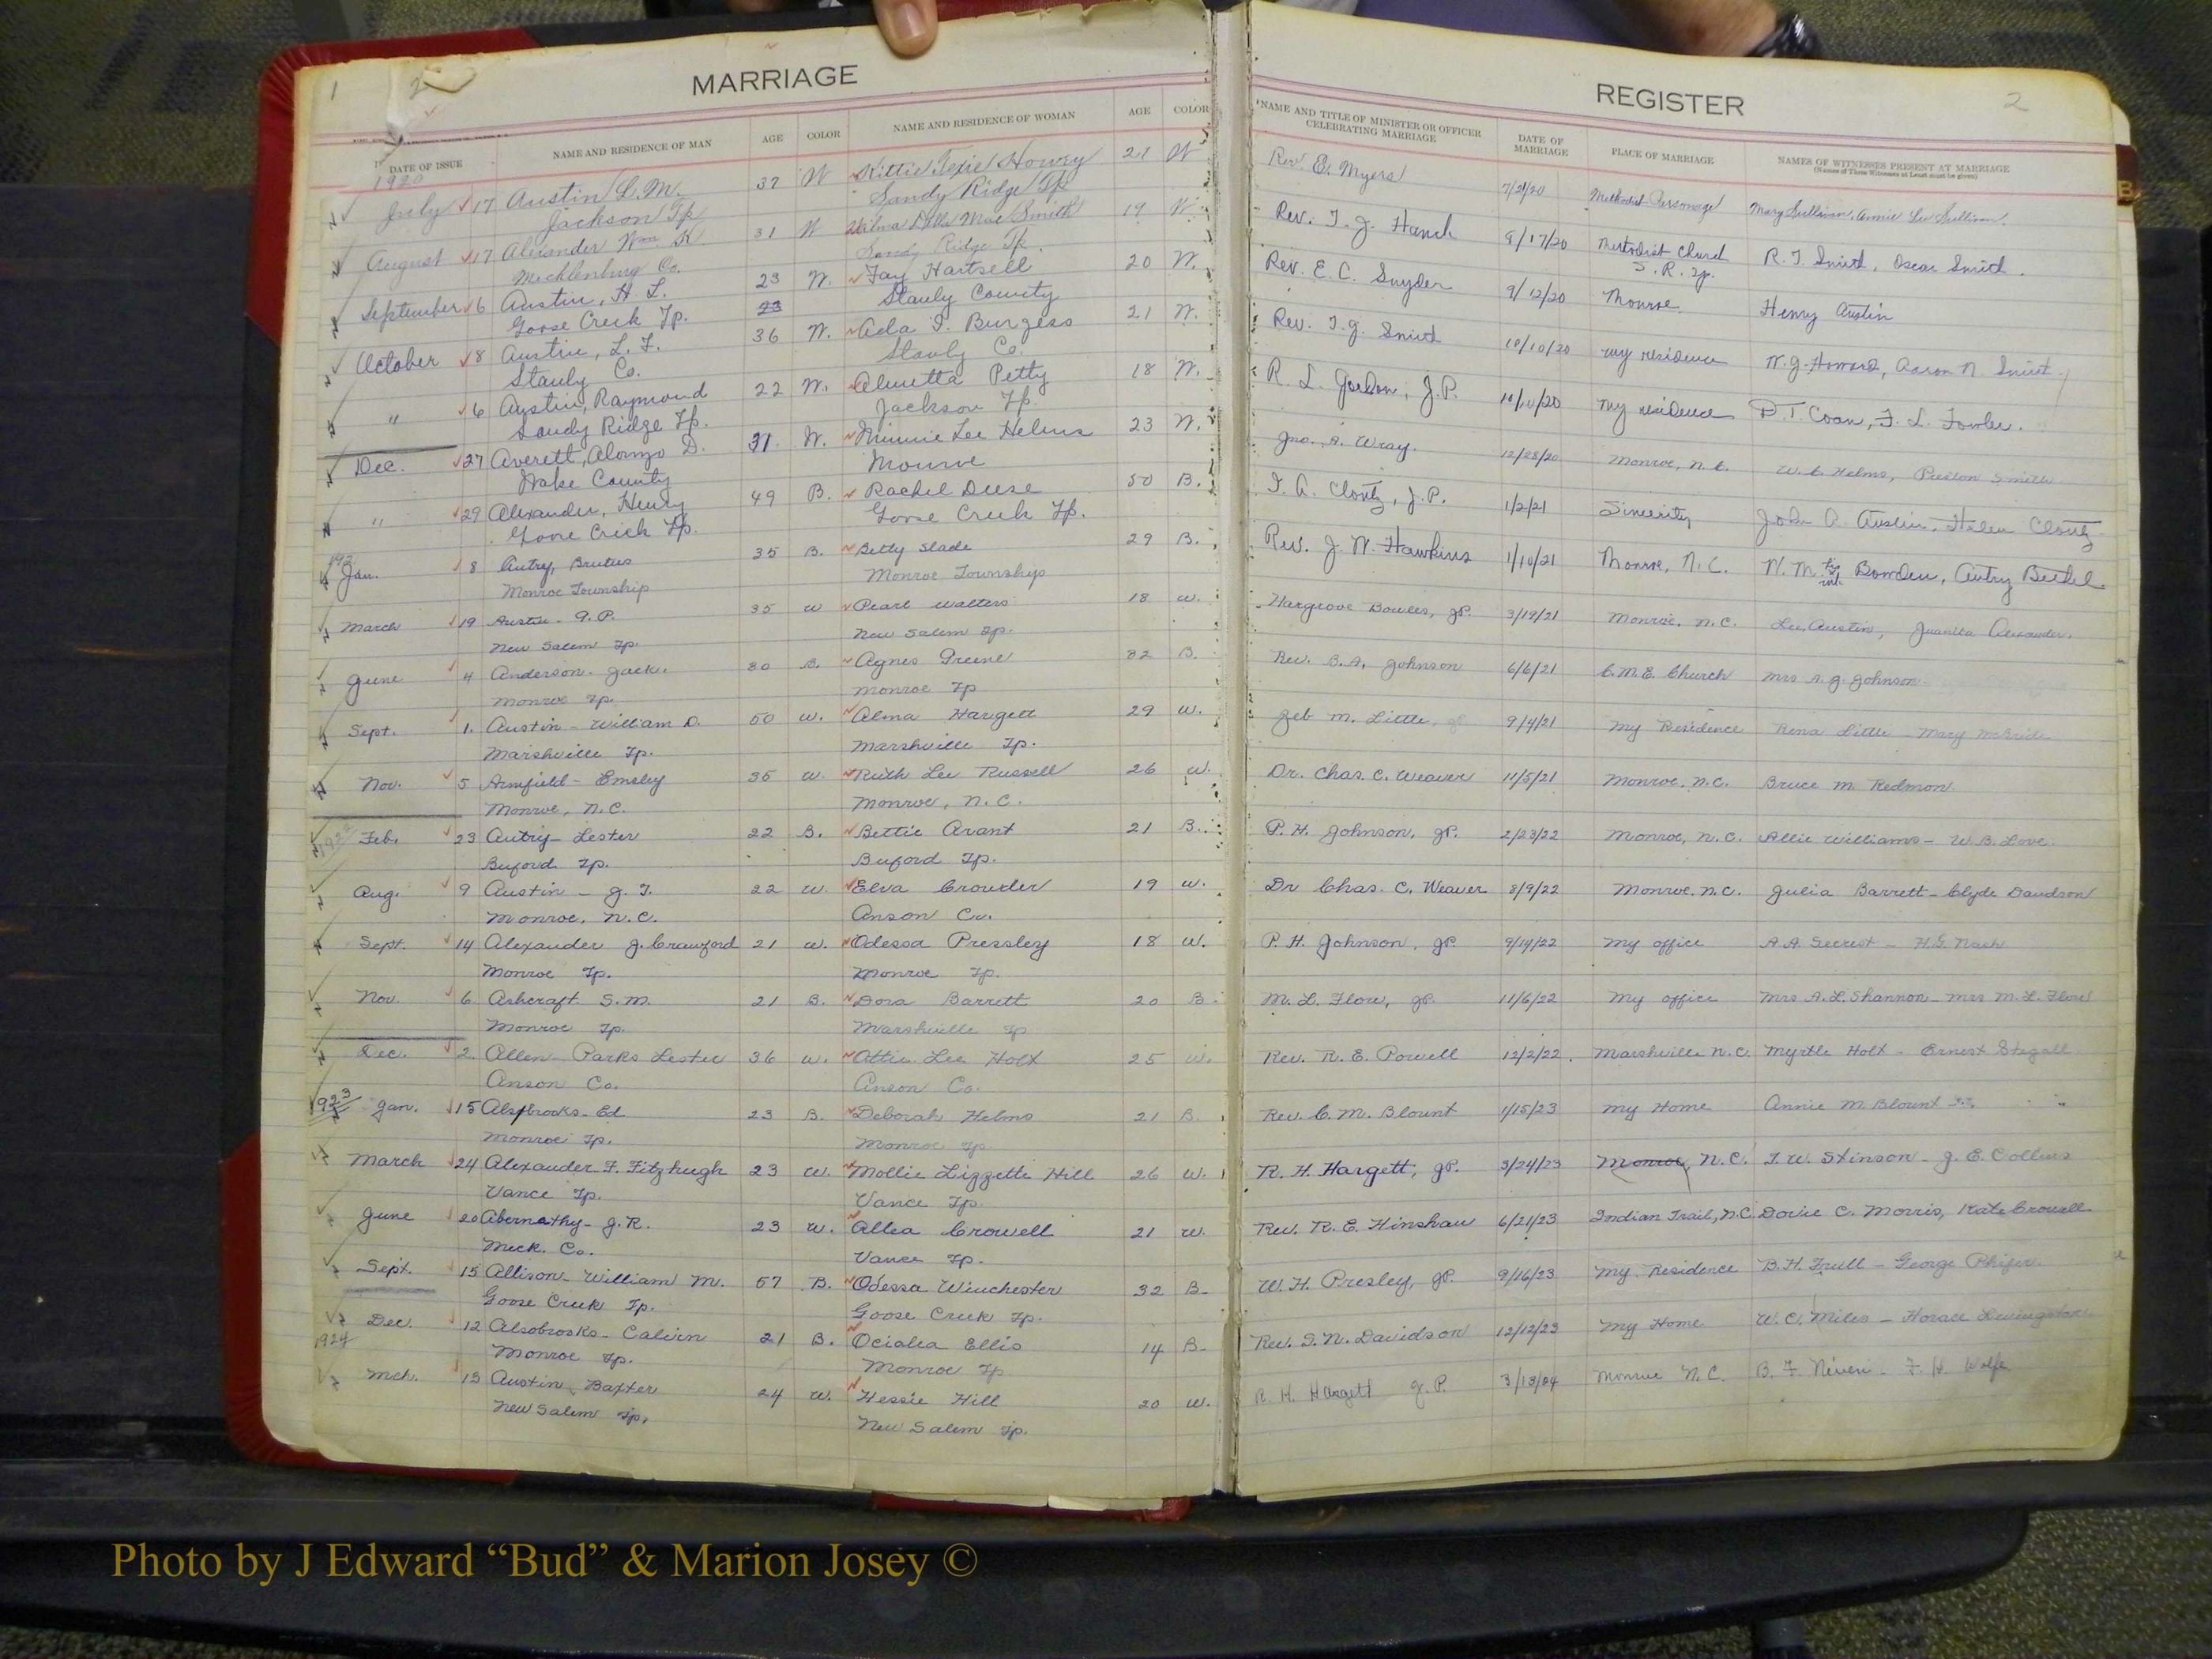 1
MARRIAGE
DATE OF ISSUE NAME AND RESIDENCE OF MAN AGE COLOR NAME AND RESIDENCE OF WOMAN AGE COLOR
1920
July 17 Austin L. M. 37 W Kittie Texie Howey 21 W
Jackson Tp Sandy Ridge Tp
August 17 Alexander Wm K 31 W Mae Smith 19 W
Mecklenburg Co. Sandy Ridge Tp.
September 6 Austin, H. L. 23 W. Fay Hartsell 20 W.
Goose Creek Tp. 23 Stanly County
October 8 Austin, L. F. 36 W. Ada I. Burgess 21 W.
Stanly Co. Stanly Co.
" 6 Austin, Raymond 22 W. Petty 18 W.
Sandy Ridge Tp. Jackson Tp.
Dec. 27 Averett, Alonzo D. 31 W. Minnie Lee Helms 23 W.
Wake County Monroe
" 29 Alexander, Henry 49 B. Rachel Deese 50 B.
Goose Creek Tp. Goose Creek Tp.
192 Jan. 8 Autry, Brutus 35 B. Betty Slade 29 B.
Monroe Township Monroe Township
March 19 Austin - A. P. 35 W Pearl Walters 18 W.
New Salem Tp. New Salem Tp.
June 4 Anderson - Jack. 30 B. Agnes Greene 32 B.
Monroe Tp. Monroe Tp
Sept. 1. Austin - William D. 50 W. Alma Hargett 29 W.
Marshville Tp. Marshville Tp.
Nov. 5 Armfield - Emsley 35 W. Ruth Lee Russell 26 W.
Monroe, N.C. Monroe, N.C.
1922 Feb. 23 Autry - Lester 22 B. Bettie Avant 21 B.
Buford Tp. Buford Tp.
Aug. 9 Austin - J. T. 22 W. Elva Crowder 19 W.
Monroe, N.C. Anson Co.
Sept. 14 Alexander J. Crawford 21 W. Odessa Pressley 18 W.
Monroe Tp. Monroe Tp.
Nov. 6 Ashcraft S. M. 21 B. Dora Barrett 20 B.
Monroe Tp. Marshville Tp
Dec. 2. Allen - Parks Lester 36 W. Attie Lee Holt 25 W.
Anson Co. Anson Co.
1923 Jan. 15 Alsobrooks - Ed 23 B. Deborah Helms 21 B.
Monroe Tp. Monroe Tp
March 24 Alexander F. Fitzhugh 23 W. Mollie Lizzette Hill 26 W.
Vance Tp. Vance Tp.
June 20 Abernathy - J. R. 23 W. Allea Crowell 21 W.
Meck. Co. Vance Tp.
Sept. 15 Allison - William M. 57 B. Odessa Winchester 32 B
Goose Creek Tp. Goose Creek Tp.
Dec. 12 Alsobrooks - Calvin 21 B. Ocialea Ellis 14 B
1924 Monroe Tp. Monroe Tp
Mch. 13 Austin, Baxter 24 W. Hessie Hill 20 W.
New Salem Tp. New Salem Tp.
REGISTER
2
NAME AND TITLE OF MINISTER OR OFFICER CELEBRATING MARRIAGE DATE OF MARRIAGE PLACE OF MARRIAGE NAMES OF WITNESSES PRESENT AT MARRIAGE
(Names of Three Witnesses at Least must be given)
Rev. E. Myers 7/21/20 Methodist Parsonage Mary Sullivan, Annie Lee Sullivan.
Rev. T. J. Hauck 8/17/20 Methodist Church R. T. Smith, Oscar Smith.
S. R. Tp.
Rev. E. C. Snyder 9/12/20 Monroe Henry Austin
Rev. T. J. Smith 10/10/20 my residence W. G. Howard, Aaron N. Smith
R. L. Gordon, J.P. 10/10/20 my residence D. T. Coan, F. L. Fowler.
Jno. A. Wray. 12/28/20 Monroe, N.C. W. C. Helms, Preston Smith
I. A. Clontz, J.P. 1/2/21 Sincerity John A. Austin, Helen Clontz
Rev. J. W. Hawkins 1/10/21 Monroe, N.C. W. M. Bowden, Autry Bethel
Hargrove Bowles, JP. 3/19/21 Monroe, N.C. Lee Austin, Juanita Alexander.
Rev. B. A. Johnson 6/6/21 C.M.E. Church Mrs A. J. Johnson
Zeb M. Little, JP 9/4/21 My Residence Rena Little - Mary McBride
Dr. Chas. C. Weaver 11/5/21 Monroe, N.C. Bruce M. Redmon
P. H. Johnson, JP. 2/23/22 Monroe, N.C. Allie Williams - W. B. Love
Dr Chas. C. Weaver 8/9/22 Monroe, N.C. Julia Barrett - Clyde Davidson
P. H. Johnson, JP. 9/14/22 My office A. A. Secrest - H. G. Nash
M. L. Flow, JP. 11/6/22 My office Mrs A. L. Shannon - Mrs M. L. Flow
Rev. R. E. Powell 12/2/22. Marshville N.C. Myrtle Holt - Ernest Stegall
Rev. C. M. Blount 1/15/23 My Home Annie M. Blount
R. H. Hargett, JP. 3/24/23 Monroe, N.C. T. W. Stinson - J. E. Collins
Rev. R. E. Hinshaw 6/21/23 Indian Trail, N.C. Dovie C. Morris, Kate Crowell
W. H. Presley, JP. 9/16/23 My Residence B. H. Trull - George Phifer
Rev. S. N. Davidson 12/12/23 My Home W. C. Miles - Horace Livingston
R. H. Hargett J. P. 3/13/24 Monroe N.C. B. F. Niven - F. H. Wolfe
B
Photo by J Edward “Bud” & Marion Josey ©